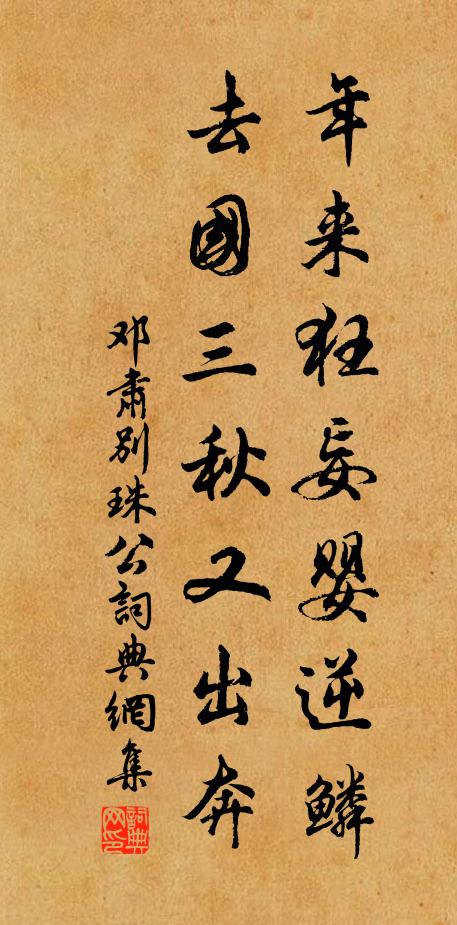 年来狂妄嬰逆鱗
去國三秋又出奔
邓肅别珠公詞典網集
詞典网印